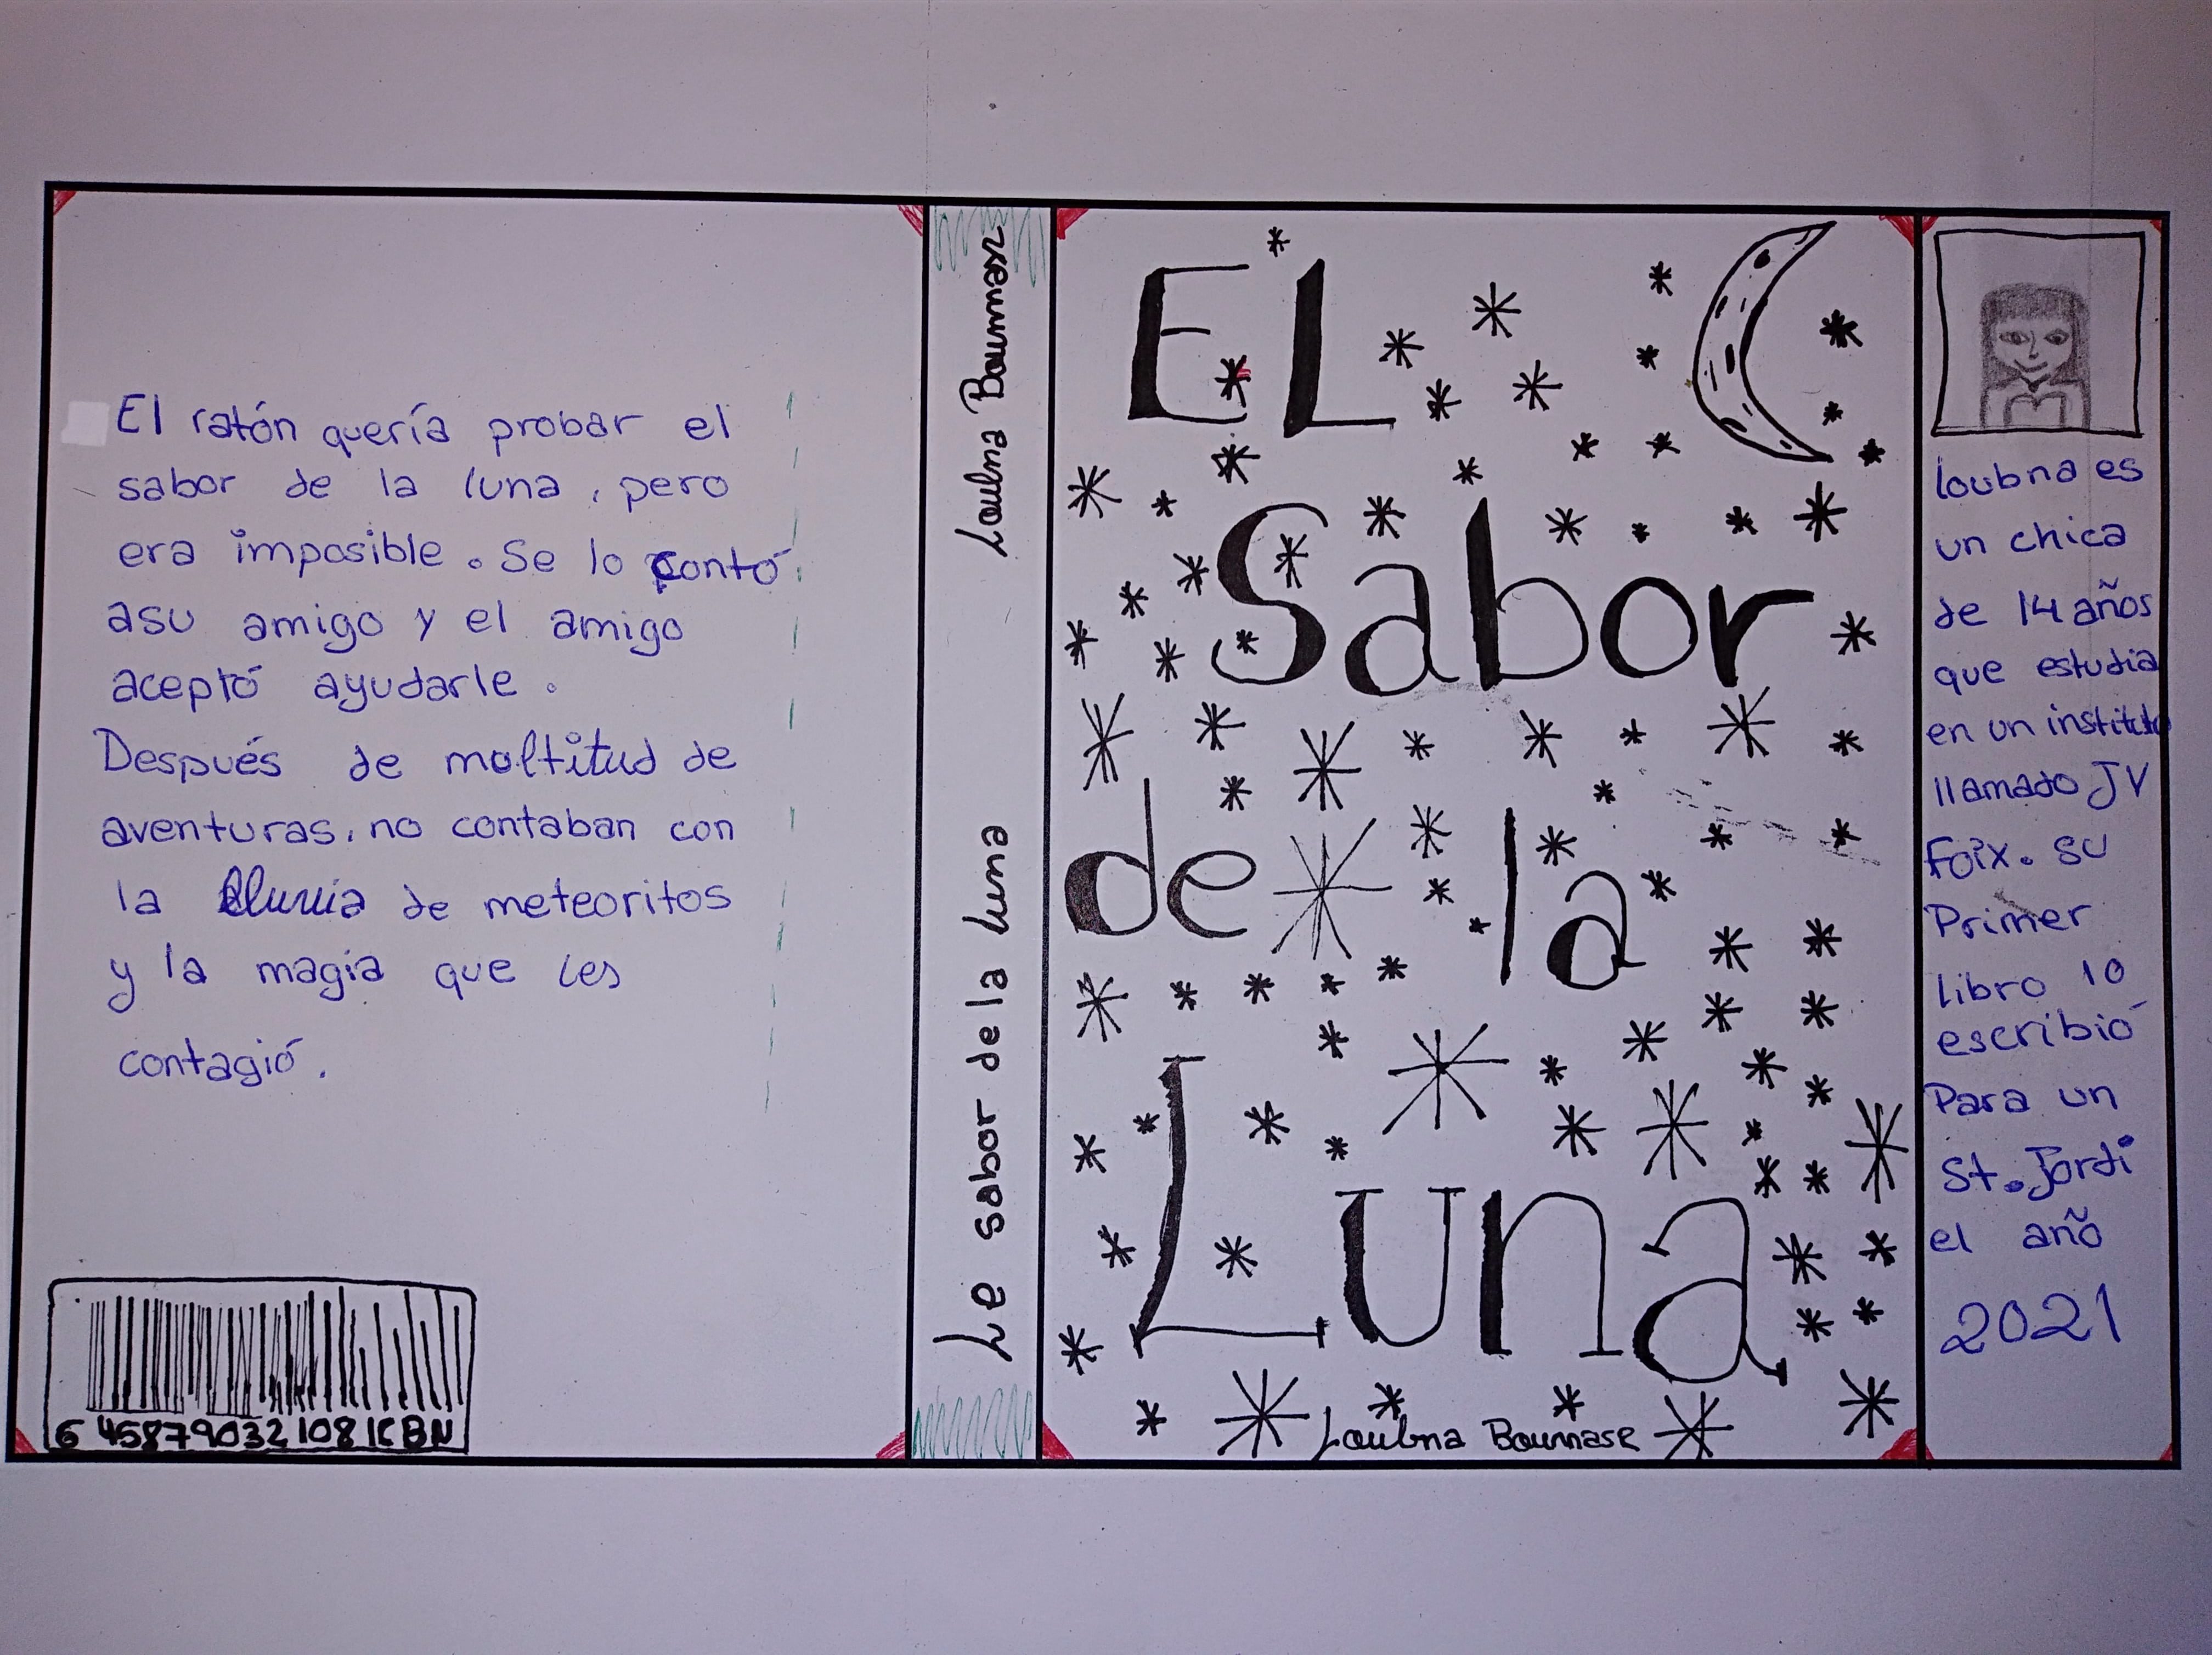 El ratón quería probar el
sabor de la luna, pero
era imposible. Se lo contó
asu amigo y el amigo
aceptó ayudarle.
Después de moltitud de
aventuras, no contaban con
la lluvia de meteoritos
y la magia que les
contagió.
6 45879032108 ICBN
Loubna Boumase
Le sabor de la luna
EL
Sabor
de la
Luna
Loubna Boumase
loubna es
un chica
de 14 años
que estudia
en un instituto
llamado JV
Foix. su
Primer
libro lo
escribió
Para un
St. Jordi
el año
2021